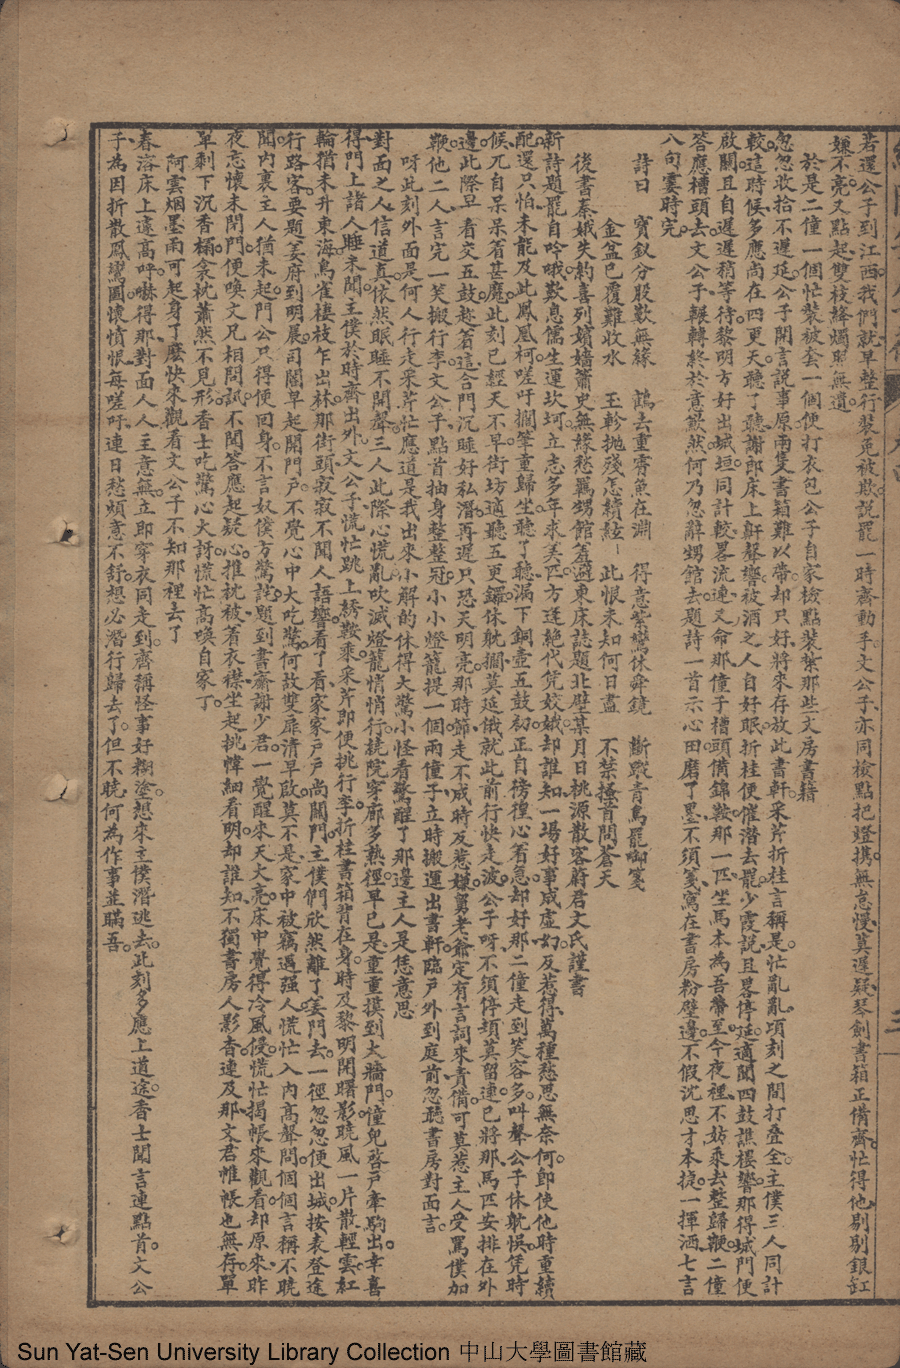 若還公子到江西我們就早整行裝免被欺說罷一時齊動手文公子亦同檢點把燈携無怠慢莫遲疑琴劍書箱正備齊忙得他剔剔銀缸
嫌不亮又點起雙枝絳燭照無遺
於是二僮一個忙裝被套一個便打衣包公子自家檢點裝紮那些文房書籍
忽忽收拾不遲延公子開言說事原兩隻書箱難以帶却只好將來存放此書軒采芹折桂言稱是忙亂亂項刻之間打叠全主僕三人同計
較這時候多應尚在四更天聽了聽謝郎床上鼾聲響被酒之人自好眠折桂便催潛去罷少霞說且畧停延適聞四鼓譙樓響那得城門便
啟關且自遲遲稍等待黎明方好出城垣同計較畧流連又命那僮子槽頭備錦鞍那一匹坐馬本為吾帶至今夜裡不妨乘去整歸鞭二僮
答應槽頭去文公子輾轉終於意歉然何乃忽辭甥館去題詩一首示心田磨了墨不須箋寫在書房粉壁邊不假沈思才本捷一揮洒七言
八句霎時完
詩曰　寶釵分股歎無緣　鵲去重霄魚在淵　得意紫鸞休舜鏡　斷踪青鳥罷啣箋
金盆已覆難收水　玉軫抛殘怎續絃　此恨未知何日盡　不禁搔首問蒼天
後書秦娥失約喜列嬪嬙蕭史無緣愁羈甥館蓋避東床誌題北壁某月日桃源散客蔚君文氏謹書
新詩題罷自吟哦歎息儒生運坎坷立志多年求美匹方逢絶代凭姣娥却誰知一場好事成虛幻反惹得萬種愁思無奈何即使他時重續
配還只怕未能及此鳳凰柯嗟吁擱筆重歸坐聽了聽漏下銅壼五鼓初正自徬徨心着急却好那二僮走到笑容多叫聲公子休躭悞凭時
候兀自呆呆着甚魔此刻已經天不早街坊適聽五更鑼休躭擱莫延俄就此前行快走波公子呀不須停頻莫留連已將那馬匹安排在外
邊此際早看交五鼓趁着這合門沉睡好私潛再遲只恐天明亮那時節走不成時反惹嫌舅老爺定有言詞來責備可莫惹主人受罵僕加
鞭他二人言完一笑搬行李文公子點首抽身整整冠小小燈籠提一個兩僮子立時搬運出書軒臨戶外到庭前忽聽書房對面言
呀此刻外面是何人行走采芹忙應道是我出來小解的休得大驚小怪看驚醒了那邊主人是恁意思
對面之人信道真依然眠睡不開聲三人此際心慌亂吹滅燈籠悄悄行繞院穿廊多熟徑早已是重重摸到大牆門僮兒啓戶牽駒出幸喜
得門上諸人睡未聞主僕於時齊出外文公子慌忙跳上綉鞍乘采芹即便挑行李折桂書箱背在身時及黎明開曙影曉風一片散輕雲紅
輪猶未升東海鳥雀棲枝乍出林那街頭寂寂不聞人語響看了看家家戶戶尚關門主僕們欣然離了姜門去一徑忽忽便出城按表登途
行路客要題姜府到明晨司閽早起開門戶不覺心中大吃驚何故雙扉清早啟莫不是家中被竊遇强人慌忙入內高聲問個個言稱不曉
聞內裏主人猶未起門公只得便回身不言奴僕方驚詫題到書齋謝少君一覺醒來天大亮床中覺得冷風侵慌忙揭帳來觀看却原來昨
夜忘懷未閉門便喚文兄相問試不聞答應起疑心推枕被着衣襟坐起挑幃細看明却誰知不獨書房人影杳連及那文君帷帳也無存單
單剩下沉香榻衾枕蕭然不見形香士吃驚心大訝慌忙高喚自家丁
阿雲烟墨雨可起身了麼快來觀看文公子不知那裡去了
春溶床上遠高呼嚇得那對面人人主意無立即穿衣同走到齊稱怪事好糊塗想來主僕潛逃去此刻多應上道途香士聞言連點首文公
子為因折散鳳鸞圖懷憤恨每嗟吁連日愁煩意不舒想必潛行歸去了但不曉何為作事並瞞吾
Sun Yat-Sen University Library Collection 中山大學圖書館藏